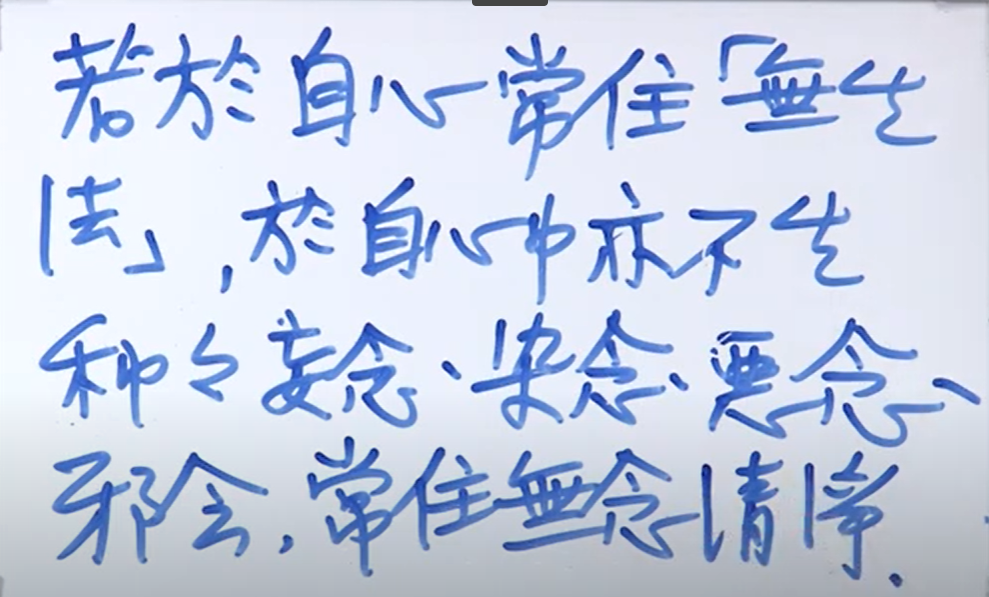 若於自心常住「無生
法」,於自心中亦不生
种々妄念、染念、悪念、
邪念,常住無念清淨.